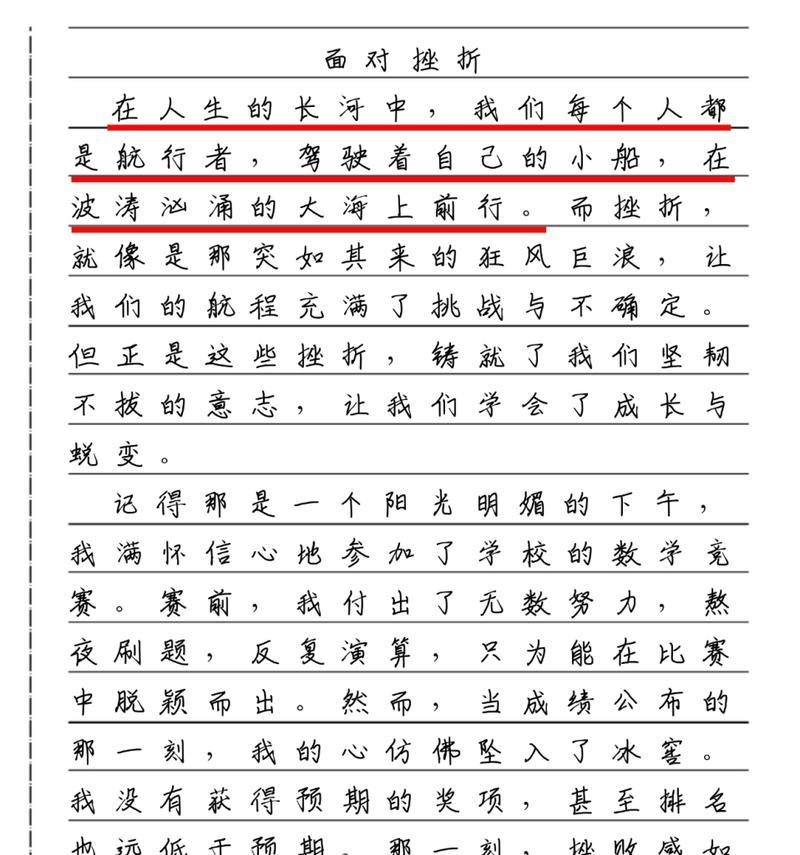 面对挫折
在人生的长河中，我们每个人都
是航行者，驾驶着自己的小船，在
波涛汹涌的大海上前行。而挫折，
就像是那突如其来的狂风巨浪，让
我们的航程充满了挑战与不确定。
但正是这些挫折，铸就了我们坚韧
不拔的意志，让我们学会了成长与
蜕变。
记得那是一个阳光明媚的下午，
我满怀信心地参加了学校的数学竞
赛。赛前，我付出了无数努力，熬
夜刷题，反复演算，只为能在比赛
中脱颖而出。然而，当成绩公布的
那一刻，我的心仿佛坠入了冰窖。
我没有获得预期的奖项，甚至排名
也远低于预期。那一刻，挫败感如